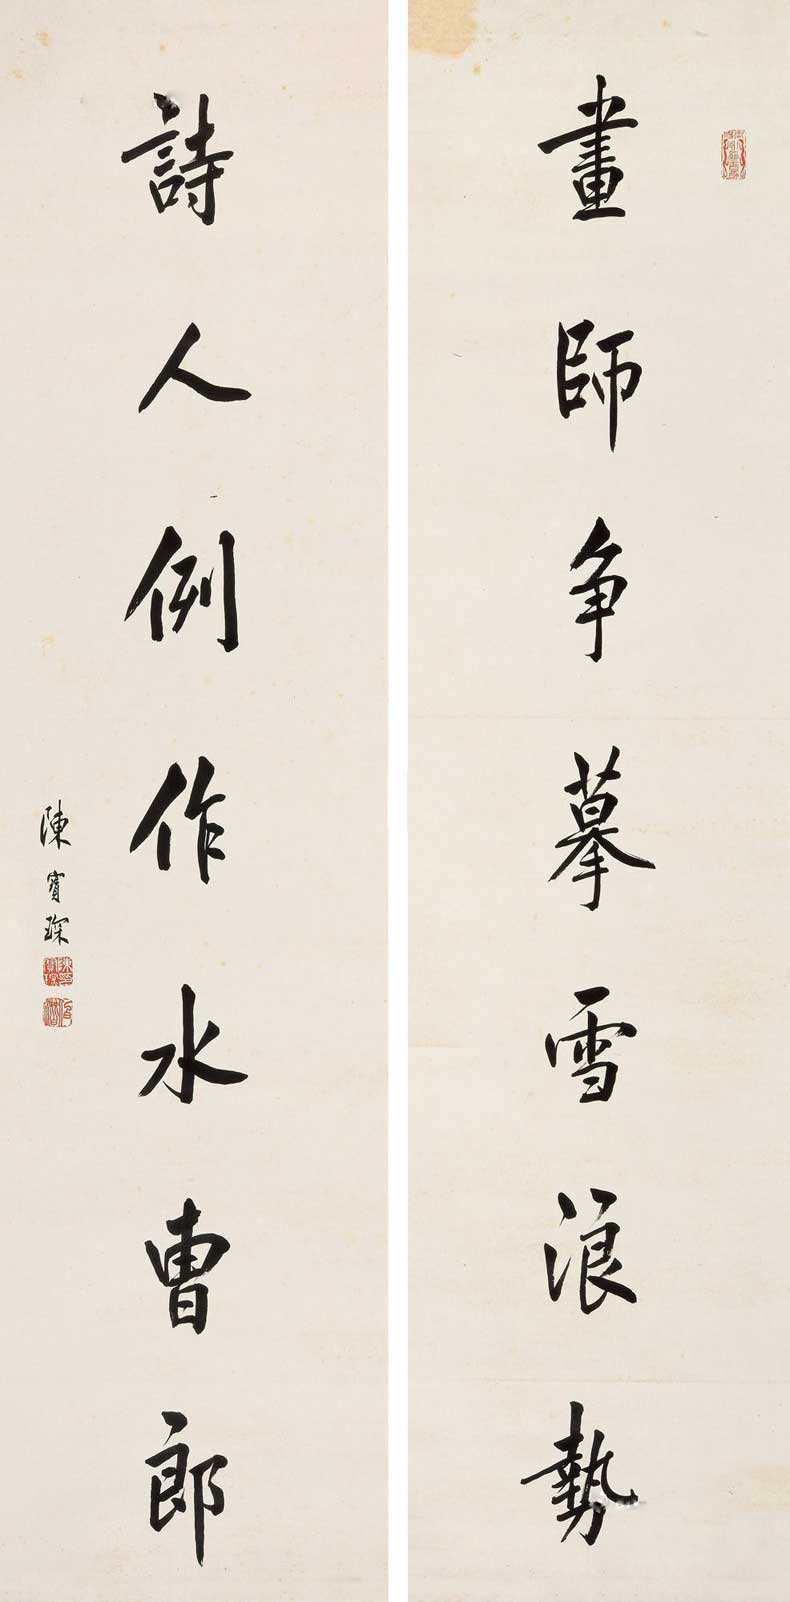 畫師争摹雪浪勢
詩人例作水曹郎
陳寶琛